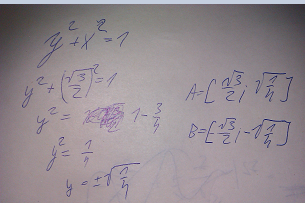 y² + x² = 1
y² + (√3/2)² = 1
y² = 1 - 3/4
y² = 1/4
y = ±√(1/4)
A = [√3/2; √(1/4)]
B = [-√3/2; -√(1/4)]